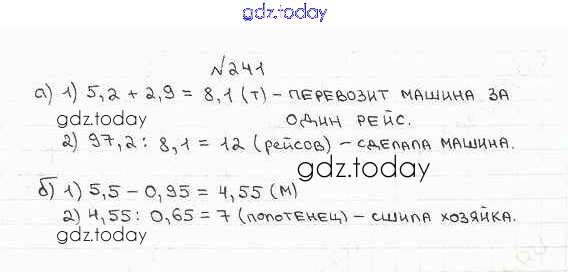 gdz.today
№241
а) 1) 5,2 + 2,9 = 8,1 (т) – ПЕРЕВОЗИТ МАШИНА ЗА
ОДИН РЕЙС.
gdz.today
2) 97,2 : 8,1 = 12 (рейсов) – СДЕЛАЛА МАШИНА.
gdz.today
б) 1) 5,5 – 0,95 = 4,55 (М)
2) 4,55 : 0,65 = 7 (ПОЛОТЕНЕЦ) – СШИЛА ХОЗЯЙКА.
gdz.today